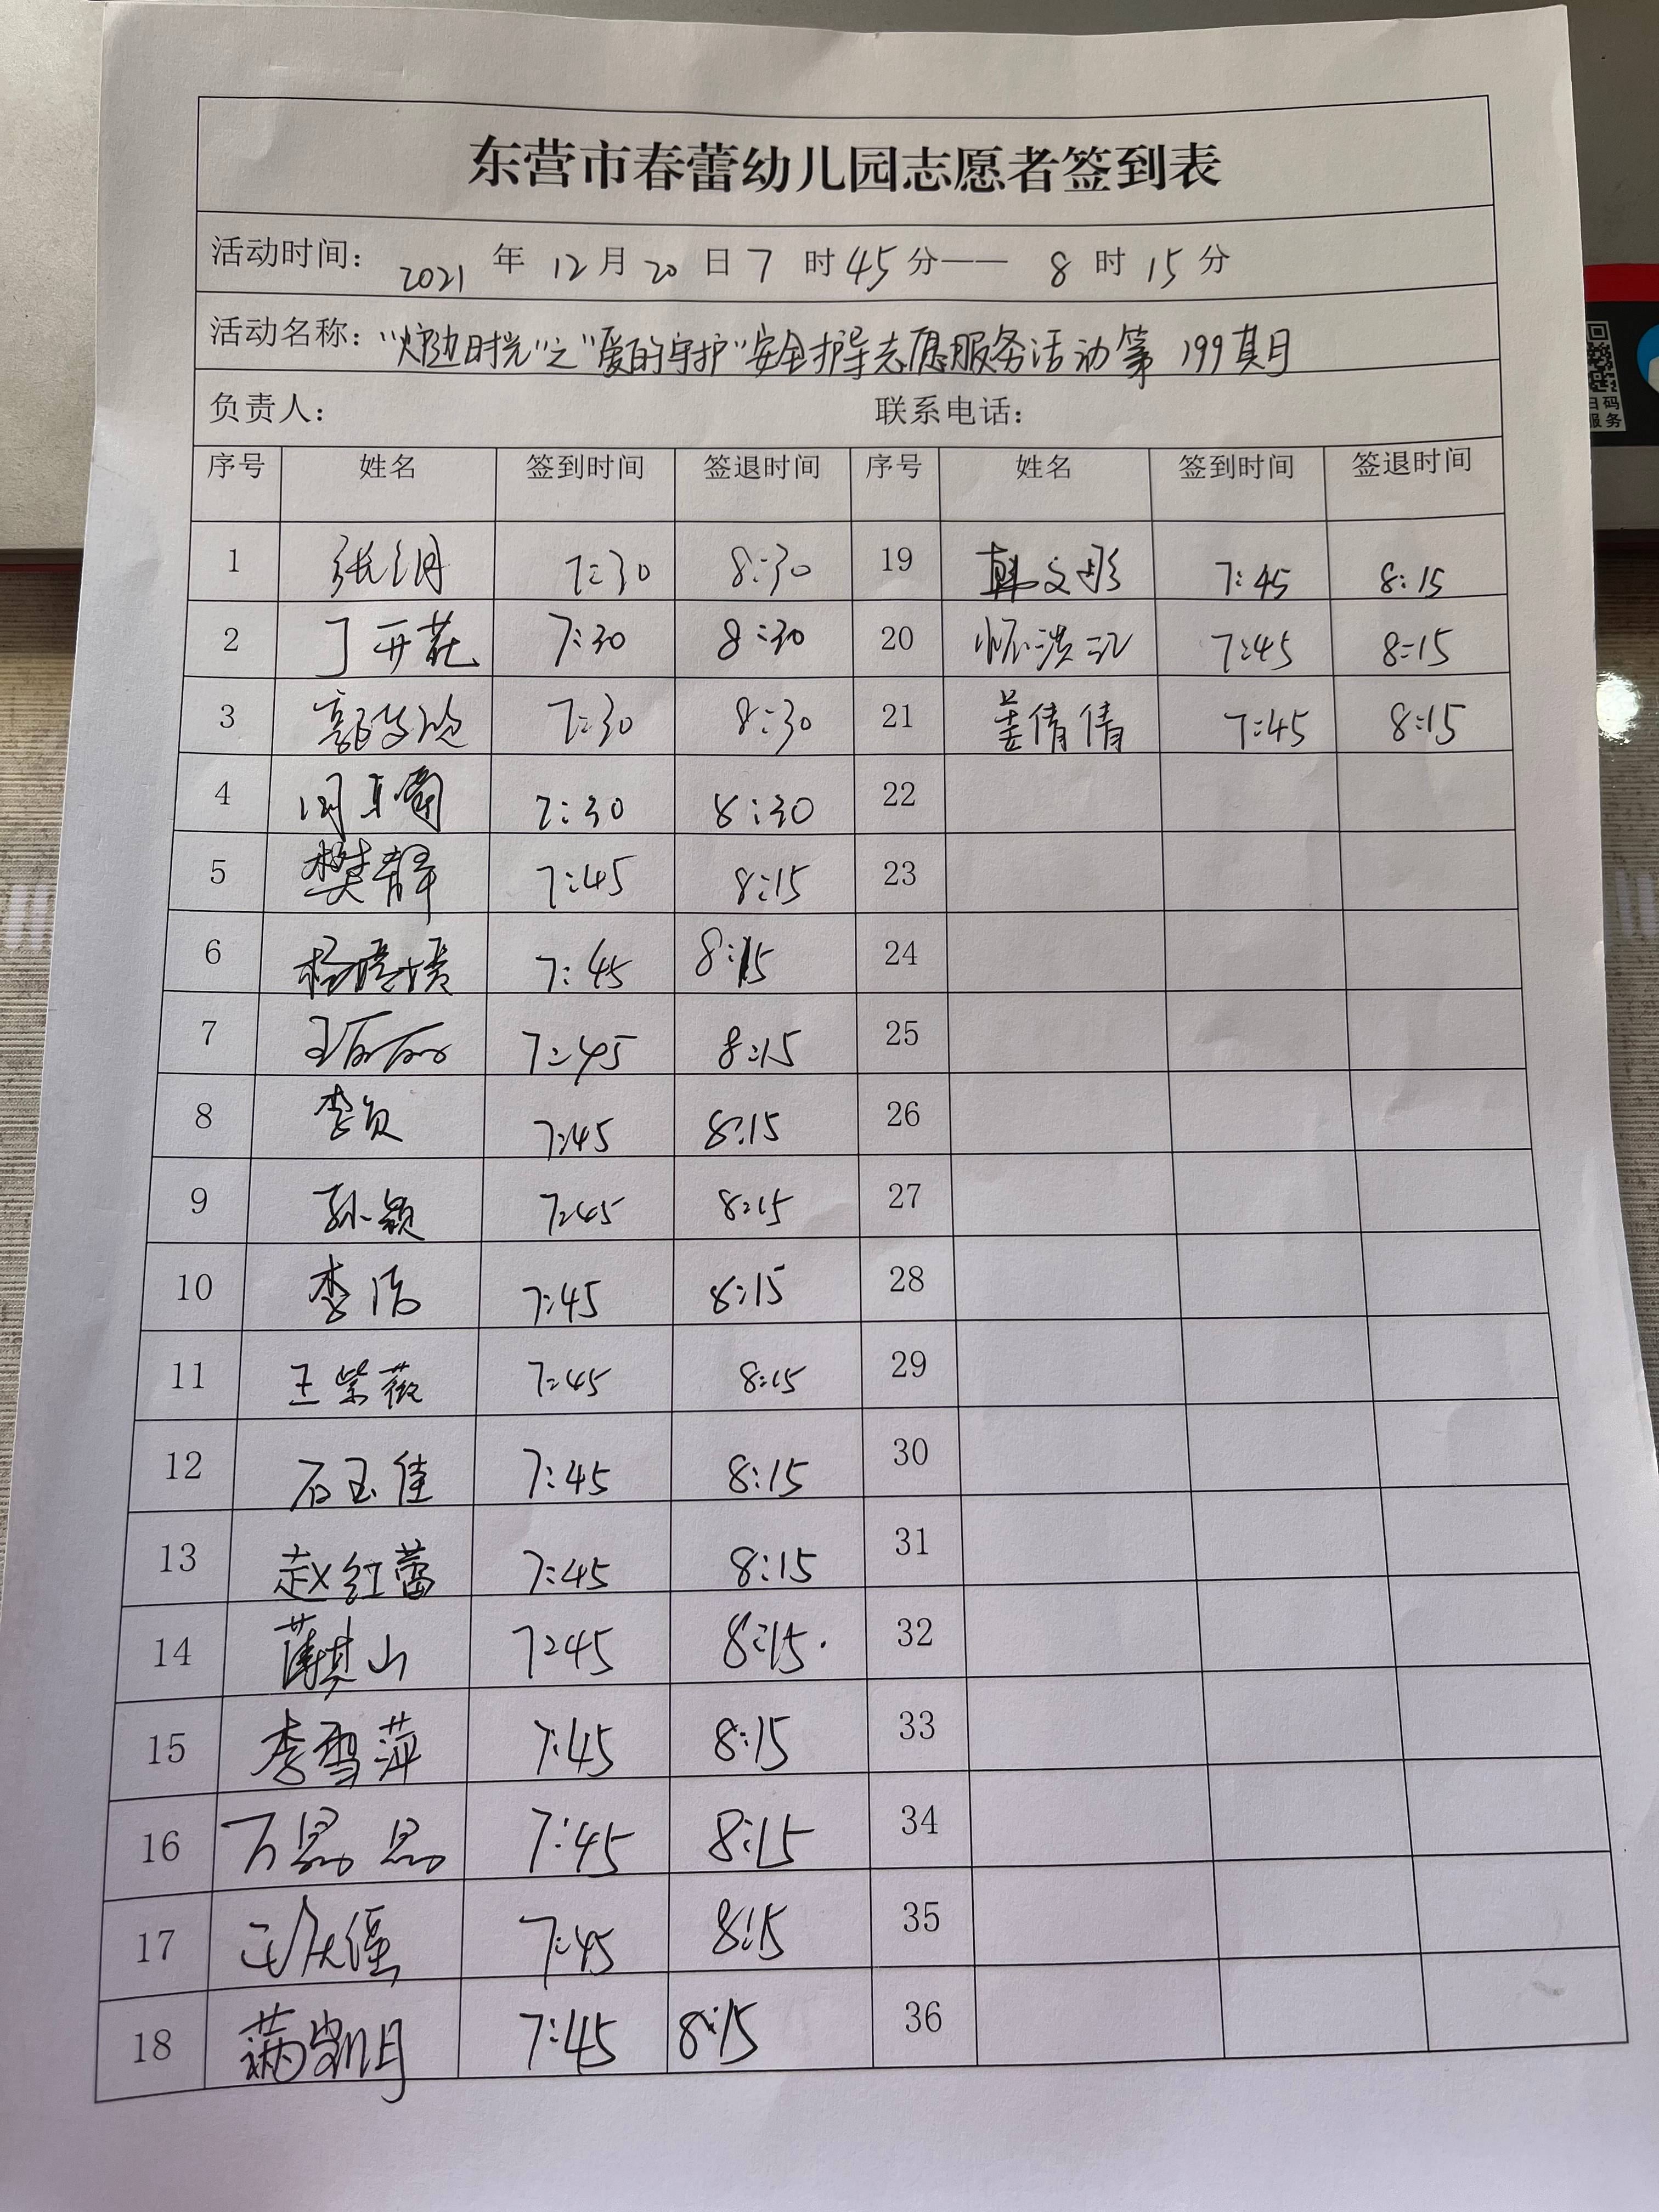 东营市春蕾幼儿园志愿者签到表
活动时间： 2021 年 12 月 20 日 7 时 45 分—— 8 时 15 分
活动名称：“炉边时光”之“爱的守护”安全护导志愿服务活动第 199 期
负责人： 联系电话：
序号 姓名 签到时间 签退时间 序号 姓名 签到时间 签退时间
1 7:30 8:30 19 韩文彤 7:45 8:15
2 丁开花 7:30 8:30 20 7:45 8:15
3 7:30 8:30 21 姜倩倩 7:45 8:15
4 7:30 8:30 22
5 樊静 7:45 8:15 23
6 7:45 8:15 24
7 王丽丽 7:45 8:15 25
8 7:45 8:15 26
9 孙颖 7:45 8:15 27
10 李洁 7:45 8:15 28
11 王紫薇 7:45 8:15 29
12 石玉佳 7:45 8:15 30
13 赵红蕾 7:45 8:15 31
14 薄其山 7:45 8:15 32
15 李雪萍 7:45 8:15 33
16 7:45 8:15 34
17 7:45 8:15 35
18 7:45 8:15 36
扫码
服务